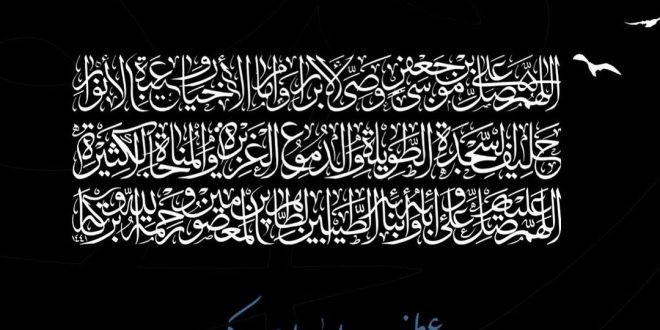 اللهم صل على موسى بن جعفر وصي الأبرار وإمام الأخيار وعيبة الأنوار
حليف السجدة الطويلة والدموع الغزيرة والمناجاة الكثيرة
اللهم صل عليه وعلى آبائه وأبنائه الطيبين الطاهرين المعصومين ورحمة الله وبركاته